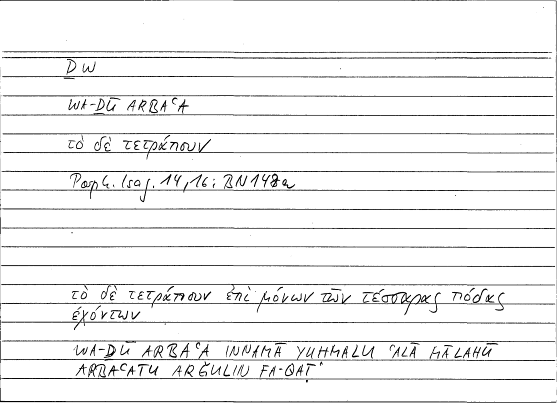 D̲W
WA-D̲Ū ARBAʿA
τὸ δὲ τετράπουν
Porph. Isag. 14,16; BN 148a
τὸ δὲ τετράπουν ἐπὶ μόνων τῶν τέσσαρας πόδας
ἐχόντων
WA-D̲Ū ARBAʿA INNAMĀ YUḤMALU ʿALĀ MĀ LAHŪ
ARBAʿATU ARǦULIN FA-QAṬ